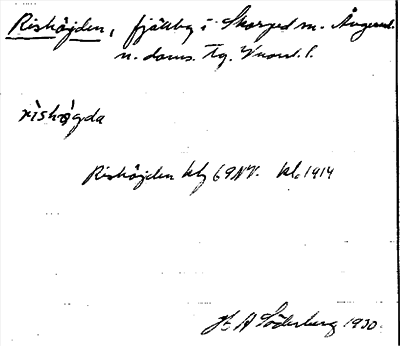 Rishöjden, fjällby i Skorped sn. Ångerml.
n. doms. tg. Vnorrl. l.
rìshø̀gda
Rishöjden kbl 69 NV. kl. 1914
H. A Söderberg 1930.